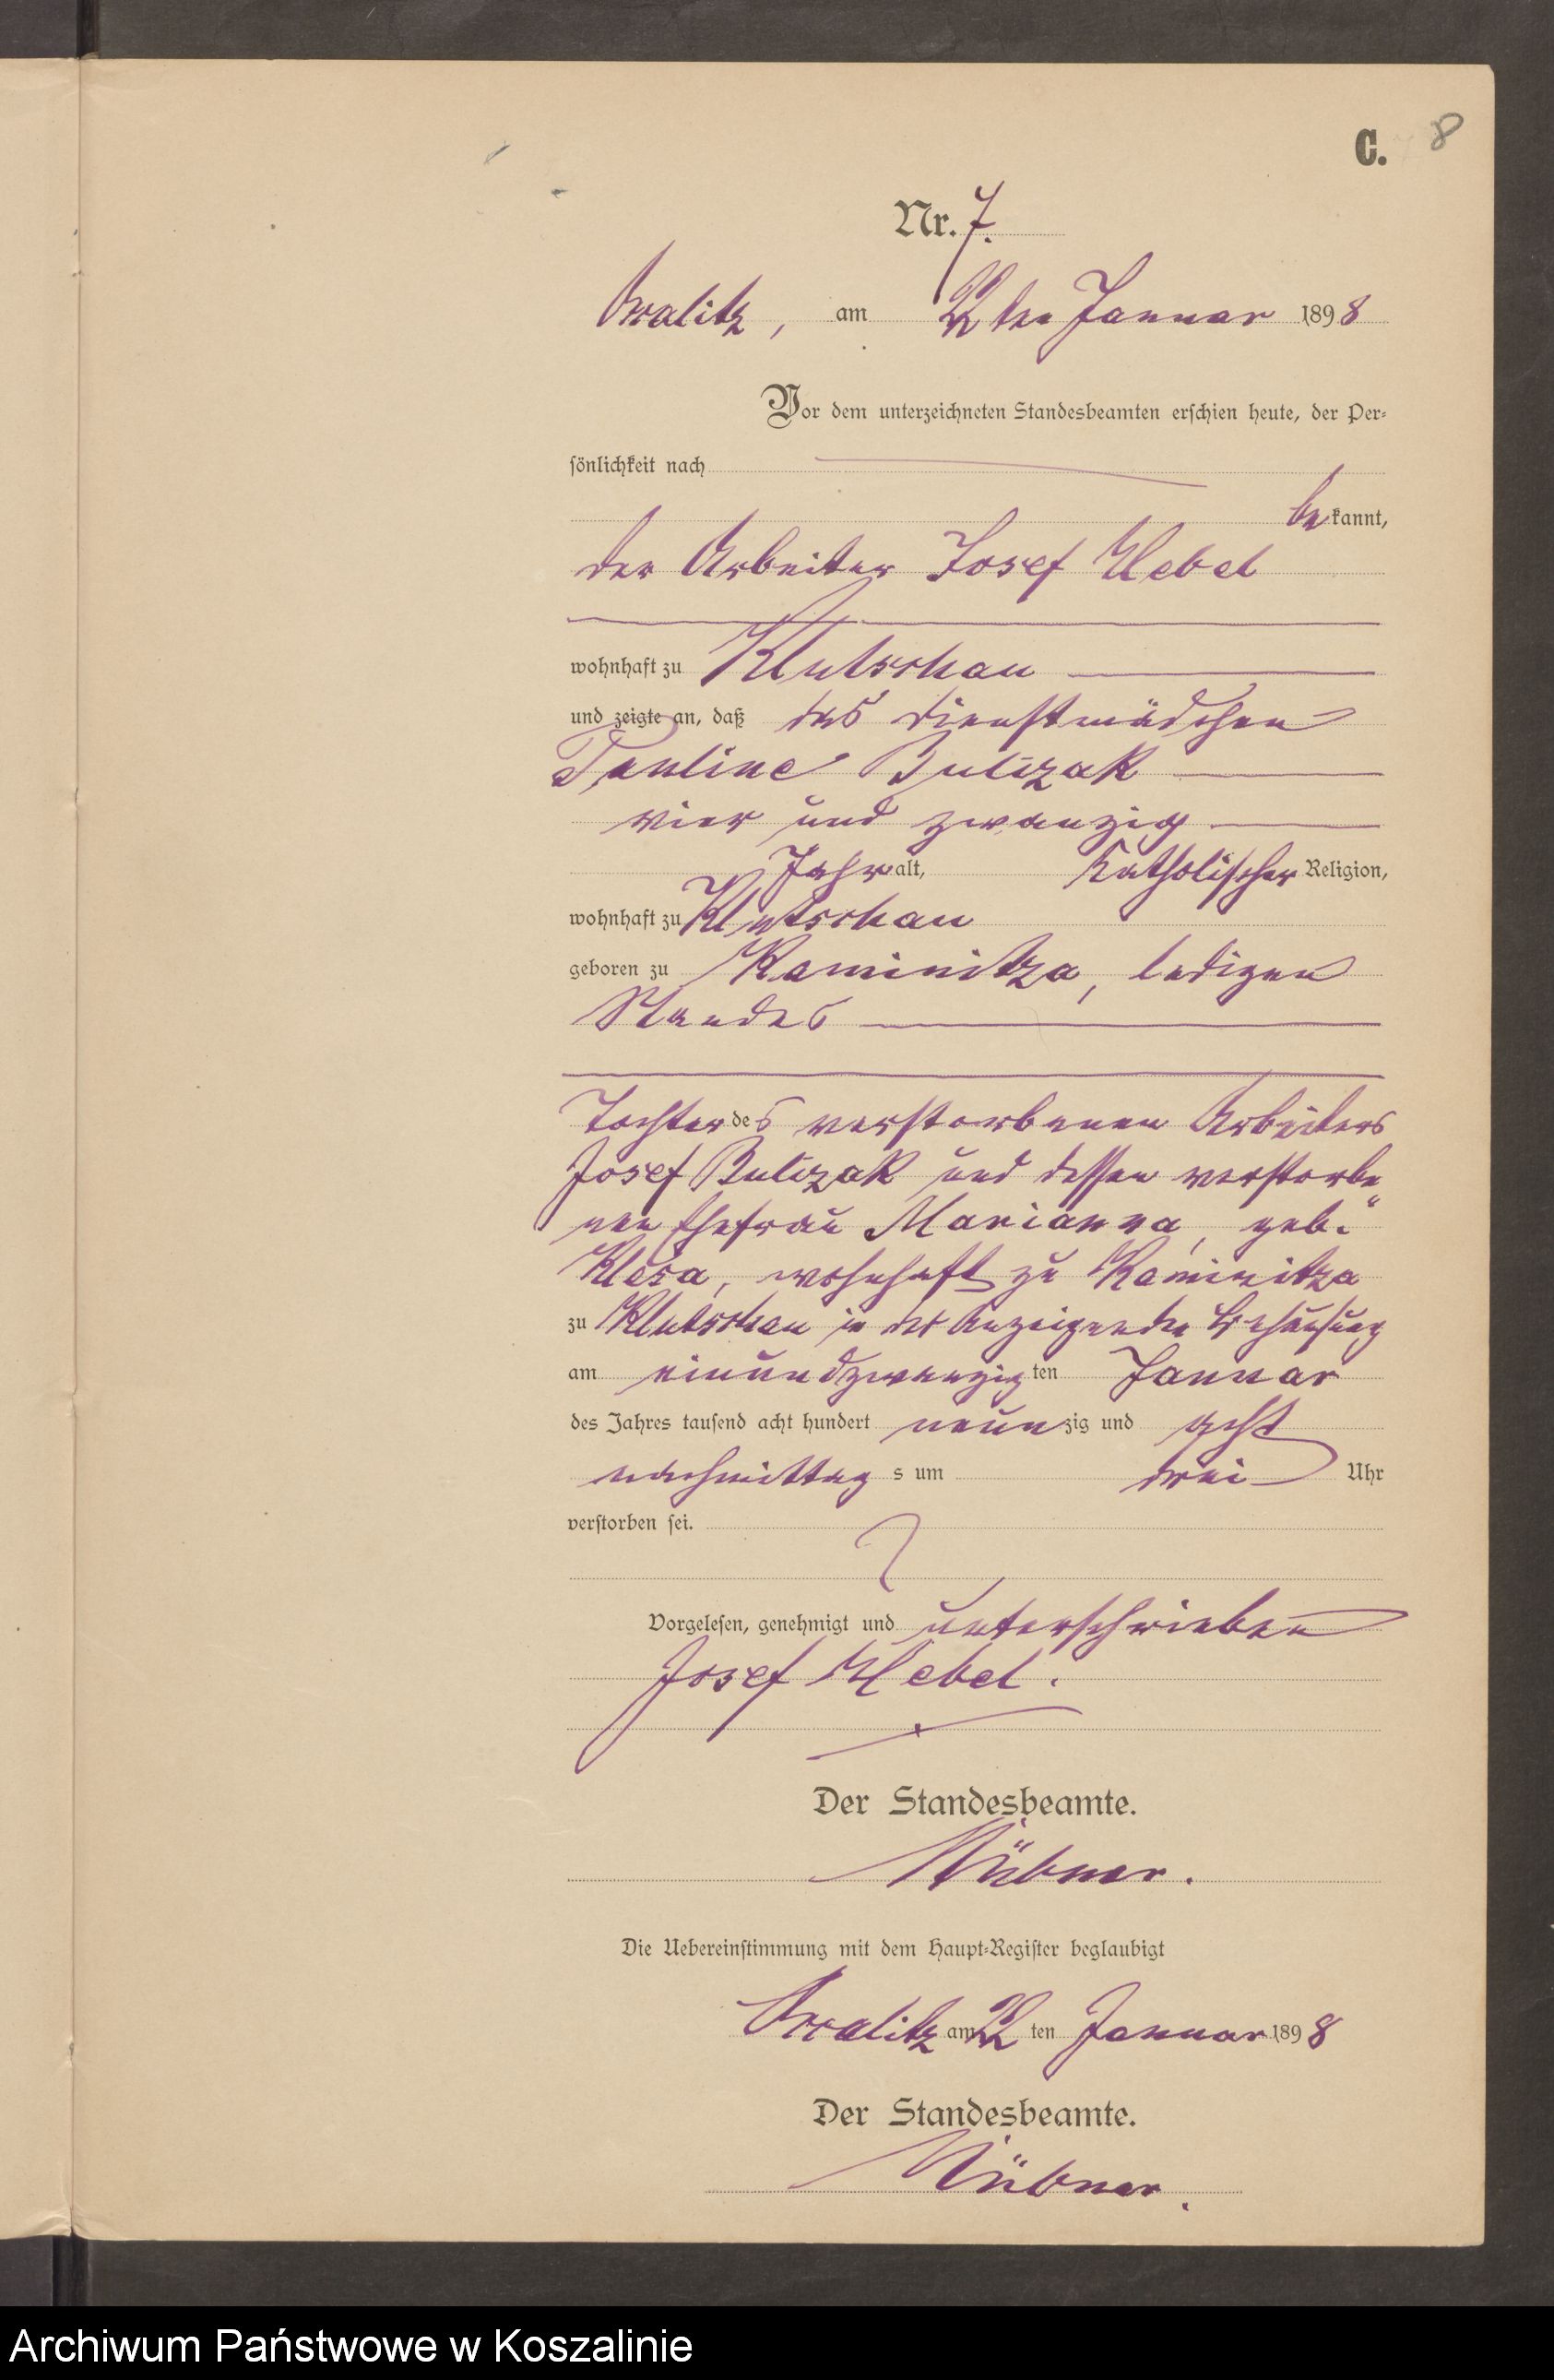 C. 8
Nr. 7.
Wralitz, am 22ten Januar 1898
Vor dem unterzeichneten Standesbeamten erschien heute, der Per-
sönlichkeit nach
bekannt,
der Arbeiter Josef Uebel
wohnhaft zu Klutschau
und zeigte an, daß das Dienstmädchen
Pauline Bulczak
vier und zwanzig
Jahr alt, katholischer Religion,
wohnhaft zu Klutschau
geboren zu Kaminitza, ledigen
Standes
Tochter des verstorbenen Arbeiters
Josef Bulczak und dessen verstorbe
nen Ehefrau Marianna, geb.
wohnhaft zu Kaminitza
zu Klutschau in der Anzeigenden Behausung
am einundzwanzigten Januar
des Jahres tausend acht hundert neunzig und acht
nachmittags um drei Uhr
verstorben sei.
Vorgelesen, genehmigt und unterschrieben
Josef Uebel.
Der Standesbeamte.
Die Uebereinstimmung mit dem Haupt-Register beglaubigt
am 22 ten Januar 1898
Der Standesbeamte.
Archiwum Państwowe w Koszalinie